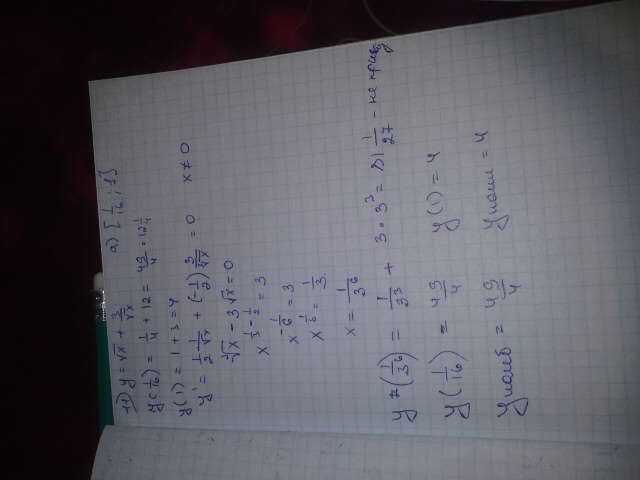 11) y = √x + 3/√x   а) [1/16; 1]
y(1/16) = 1/4 + 12 = 49/4 = 12 1/4
y(1) = 1 + 3 = 4
y' = 1/2 · 1/√x + (-1/2) 3/∛x = 0   x ≠ 0
∛x - 3√x = 0
x^(1/3 - 1/2) = 3
x^(-1/6) = 3
x^(1/6) = 1/3
x = 1/3^6
y (1/3^6) = 1/3^3 + 3 · 3^3 = 81 1/27 - не
y(1/16) = 49/4   y(1) = 4
yнаиб = 49/4   yнаим = 4